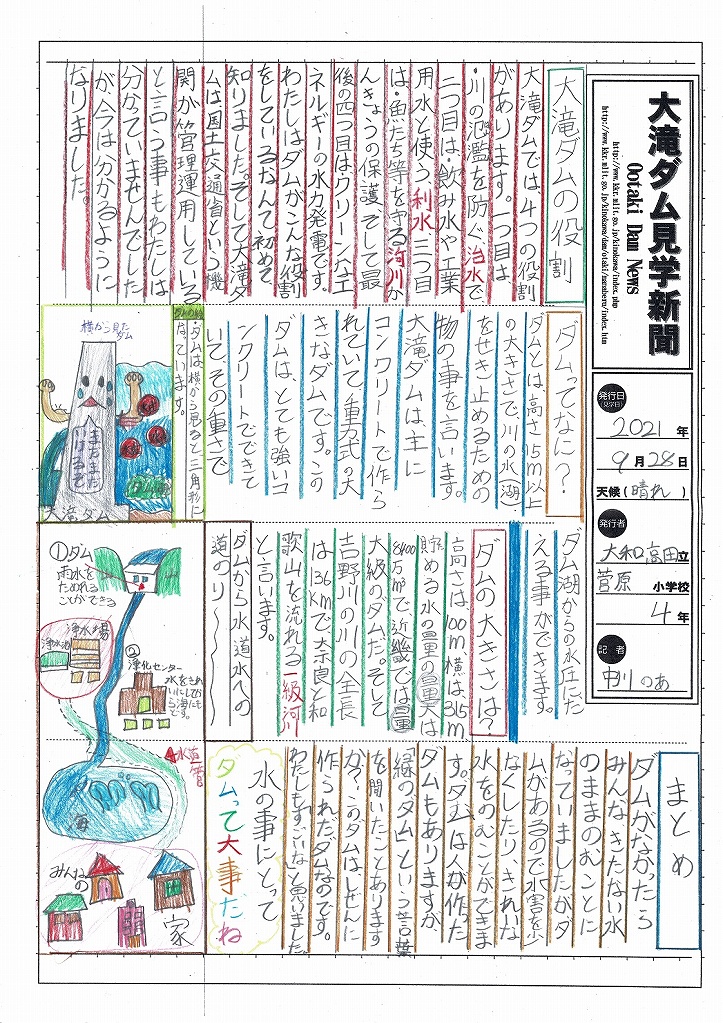 大滝ダム見学新聞
Ootaki Dam News
http://www.kkr.mlit.go.jp/kinokawa/index.php
発行日
(見学日)
2021年
9月28日
天候(晴れ)
発行者
大和高田立
菅原小学校
4年
記者
中川 のあ
大滝ダムの役割
大滝ダムでは、4つの役割
があります。一つ目は
・川の氾濫を防ぐ治水で
二つ目は・飲み水や工業
用水と使う、利水三つ目
は・魚たち等を守る河川か
んきょうの保護。そして最
後の四つ目はクリーンなエ
ネルギーの水力発電です。
わたしはダムがこんな役割
をしているなんて、初めて
知りました。そして大滝ダ
ムは国土交通省という機
関が管理運用している
と言う事もわたしは
分かっていませんでした
が今は分かるように
なりました。
ダムってなに?
ダムとは、高さ15m以上
の大きさで、川の水(湖)
をせき止めるための
物の事を言います。
大滝ダムは、主に
コンクリートで作ら
れていて、重力式の大
きなダムです。この
ダムは、とても強いコ
ンクリートでできて
いて、その重さで
ダム湖からの水圧にた
える事ができます。
・ダムは横から見ると、三角形に
なっています。
横から見た
ダム
大滝ダム
ダムの大きさは?
高さは100m、横は、315m
貯める水の量の最大は
8400万m³で、近畿では最
大級のダムだ。そして
吉野川の川の全長
は136kmで奈良と和
歌山を流れる一級河川
と言います。
ダムから水道水への
道のり〜
①ダム
雨水を
ためれる
ことができる
浄水場
浄水池
②浄化センター
水をきれ
いにしてか
ら海にも
どす。
水道管
海
みんなの
家
まとめ
ダムがなかったら
みんなきたない水
のままのむことに
なっていましたがダ
ムがあるので水害を少
なくしたり、きれいな
水をのむことができま
す。ダムは人が作った
ダムもありますが
「緑のダム」という言葉
を聞いたことあります
か?このダムは、しぜんに
作られたダムなのです。
わたしもすごいなと思いました。
水の事にとって
ダムって大事だね